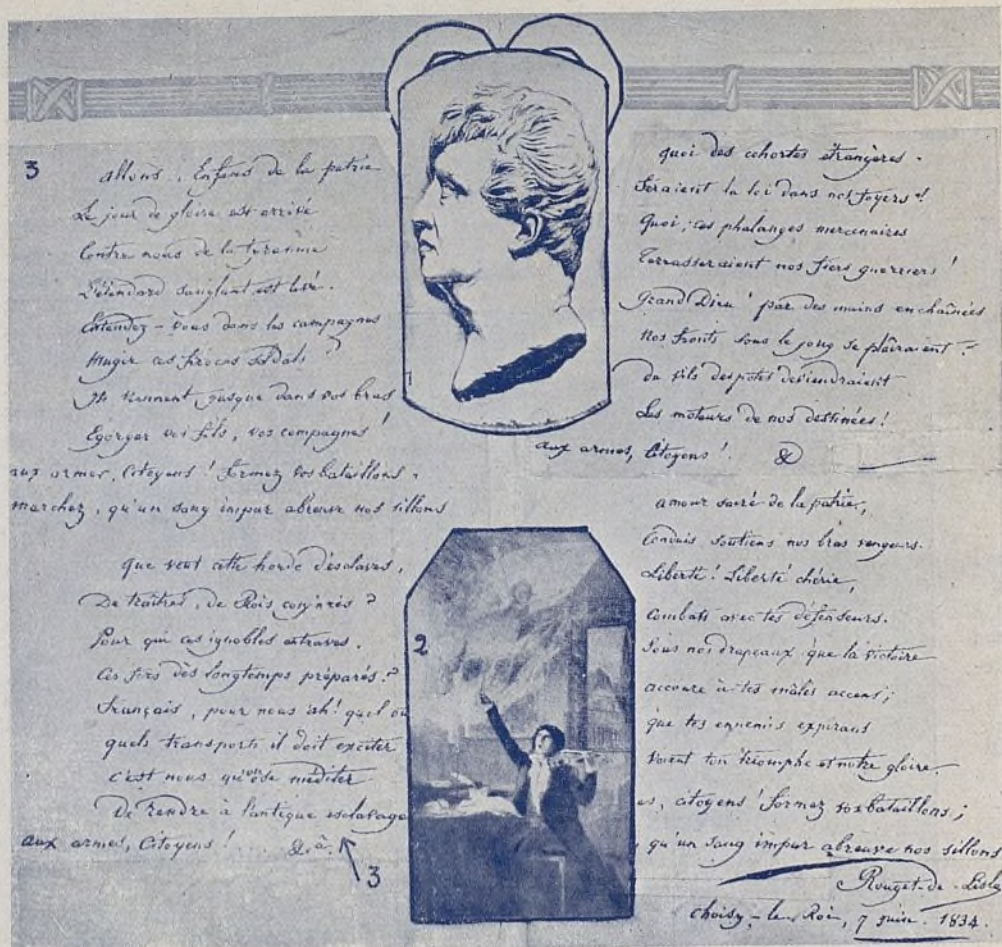 3
allons, Enfans de la patrie
Le jour de gloire est arrivé
Contre nous de la tyrannie
L'étendard sanglant est levé.
Entendez-vous dans les campagnes
Mugir ces féroces soldats ?
Ils viennent jusque dans vos bras
Egorger vos fils, vos compagnes !
aux armes, Citoyens ! formez vos bataillons.
marchez, qu'un sang impur abreuve nos sillons
que veut cette horde d'esclaves,
De traîtres, de Rois conjurés ?
Pour qui ces ignobles entraves,
Ces fers dès longtemps préparés ?
Français, pour nous ah! quel
quels transports il doit exciter
c'est nous qu'on ose méditer
De rendre à l'antique esclavage
aux armes, Citoyens ! ....
3
1
2
quoi des cohortes étrangères
feraient la loi dans nos foyers !
quoi, ces phalanges mercenaires
Terrasseraient nos fiers guerriers !
Grand Dieu ! par des mains enchaînées
Nos fronts sous le joug se plairaient ?
de vils despotes deviendraient
Les moteurs de nos destinées !
aux armes, Citoyens ! &
amour sacré de la patrie,
Conduis, soutiens nos bras vengeurs.
Liberté ! Liberté chérie,
Combats avec tes défenseurs.
Sous nos drapeaux que la victoire
accoure à tes mâles accens ;
que tes ennemis expirans
voient ton triomphe et notre gloire.
es, citoyens ! formez vos bataillons ;
, qu'un sang impur abreuve nos sillons
Rouget-de-Lisle
choisy-le-Roi, 7 juin. 1834.